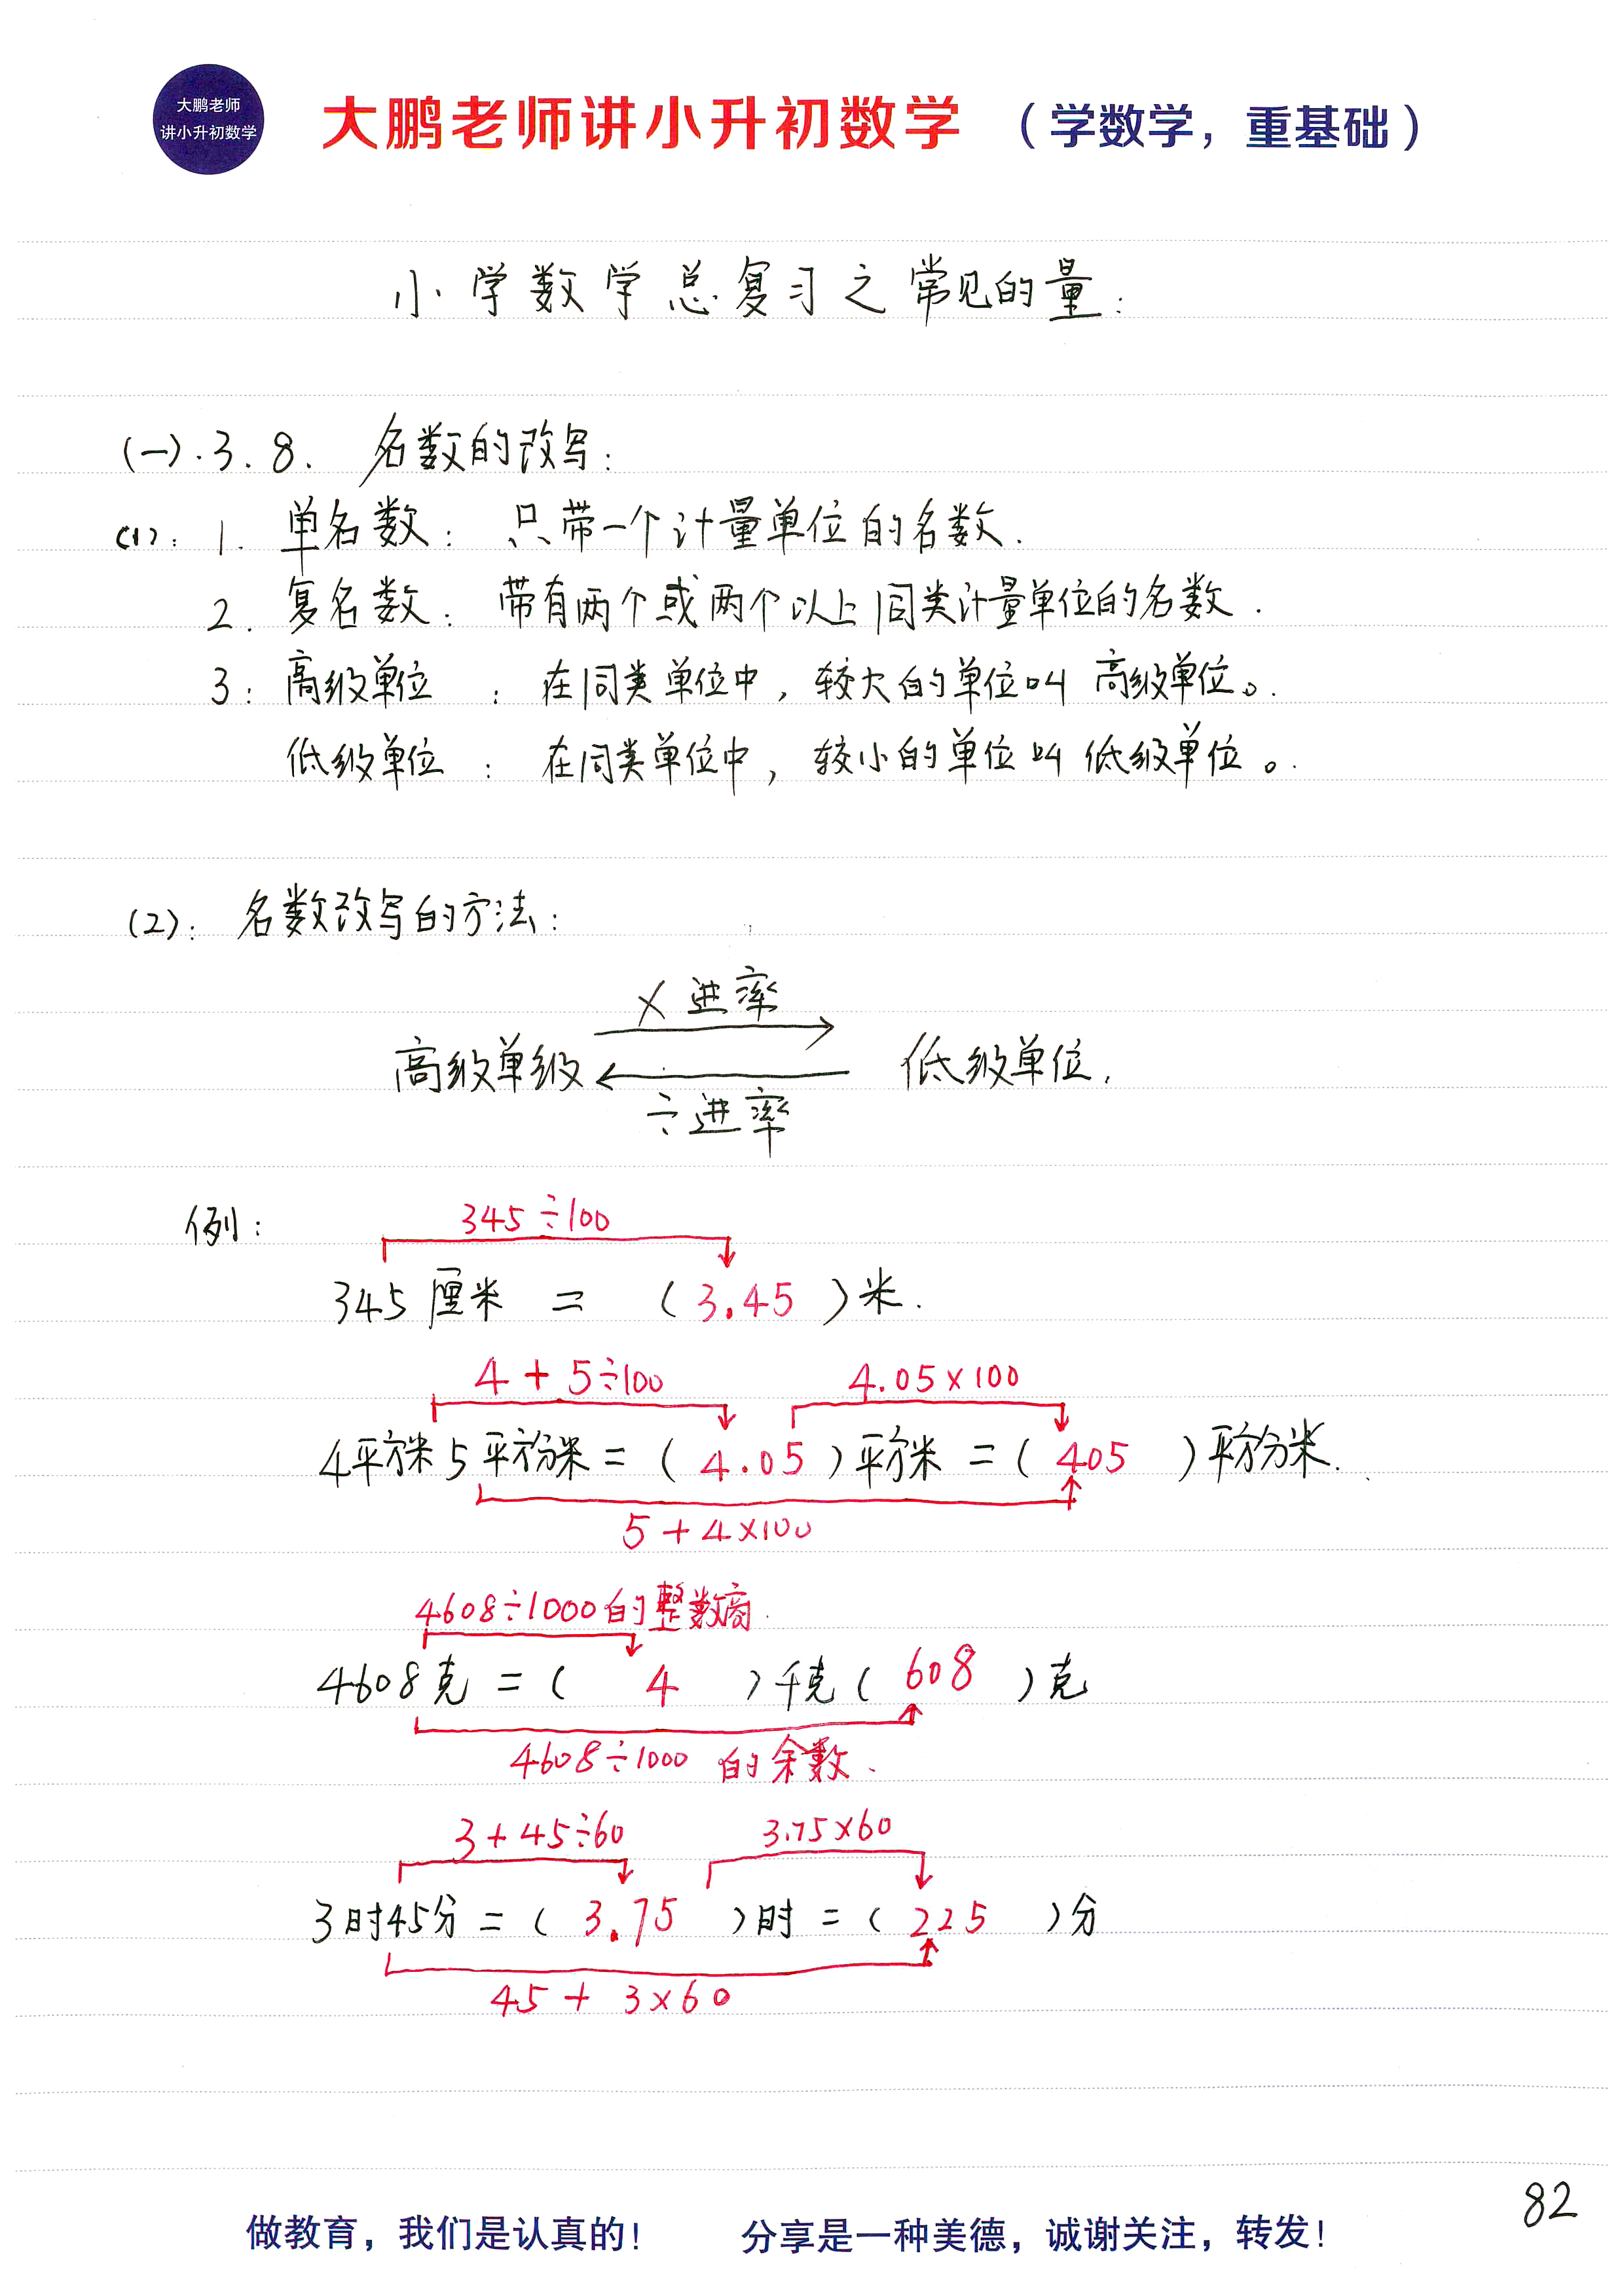 大鹏老师
讲小升初数学
大鹏老师讲小升初数学 （学数学，重基础）
小学数学总复习之常见的量：
(一).3.8. 名数的改写：
(1)： 1. 单名数： 只带一个计量单位的名数.
2. 复名数： 带有两个或两个以上同类计量单位的名数.
3： 高级单位 ： 在同类单位中，较大的单位叫 高级单位。.
低级单位 ： 在同类单位中，较小的单位叫 低级单位。.
(2)： 名数改写的方法：
× 进率
高级单级 低级单位.
÷ 进率
例：
345÷100
345厘米 = （3.45）米.
4 + 5÷100 4.05×100
4平方米5平方分米 =（4.05）平方米 =（405）平方分米.
5 + 4×100
4608÷1000的整数商.
4608克 =（ 4 ）千克（608）克
4608÷1000 的余数.
3 + 45÷60 3.75×60
3时45分 =（3.75）时 =（225）分
45 + 3×60
82
做教育，我们是认真的！ 分享是一种美德，诚谢关注，转发！